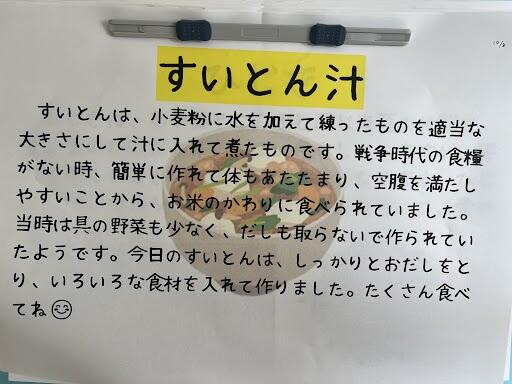 すいとん汁
すいとんは、小麦粉に水を加えて練ったものを適当な
大きさにして汁に入れて煮たものです。戦争時代の食糧
がない時、簡単に作れて体もあたたまり、空腹を満たし
やすいことから、お米のかわりに食べられていました。
当時は具の野菜も少なく、だしも取らないで作られてい
たようです。今日のすいとんは、しっかりとおだしをと
り、いろいろな食材を入れて作りました。たくさん食べ
てね😊